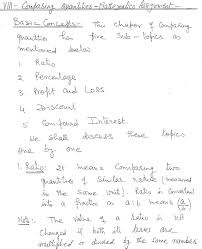 VIII - Comparing Quantities - Mathematics Assignment -
Basic Concepts:- This chapter of Comparing
quantities has five Sub-topics as
mentioned below
1 Ratio
2 Percentage
3 Profit and Loss
4 Discount
5 Compound Interest.
We shall discuss these topics
one by one
1. Ratio: It means Comparing two
quantities of Similar nature (measured
in the same unit). Ratio is Converted
into a fraction as a:b means (a/b)
Note:- The Value of a ratio is not
changed if both its terms are
multiplied or divided by the same number